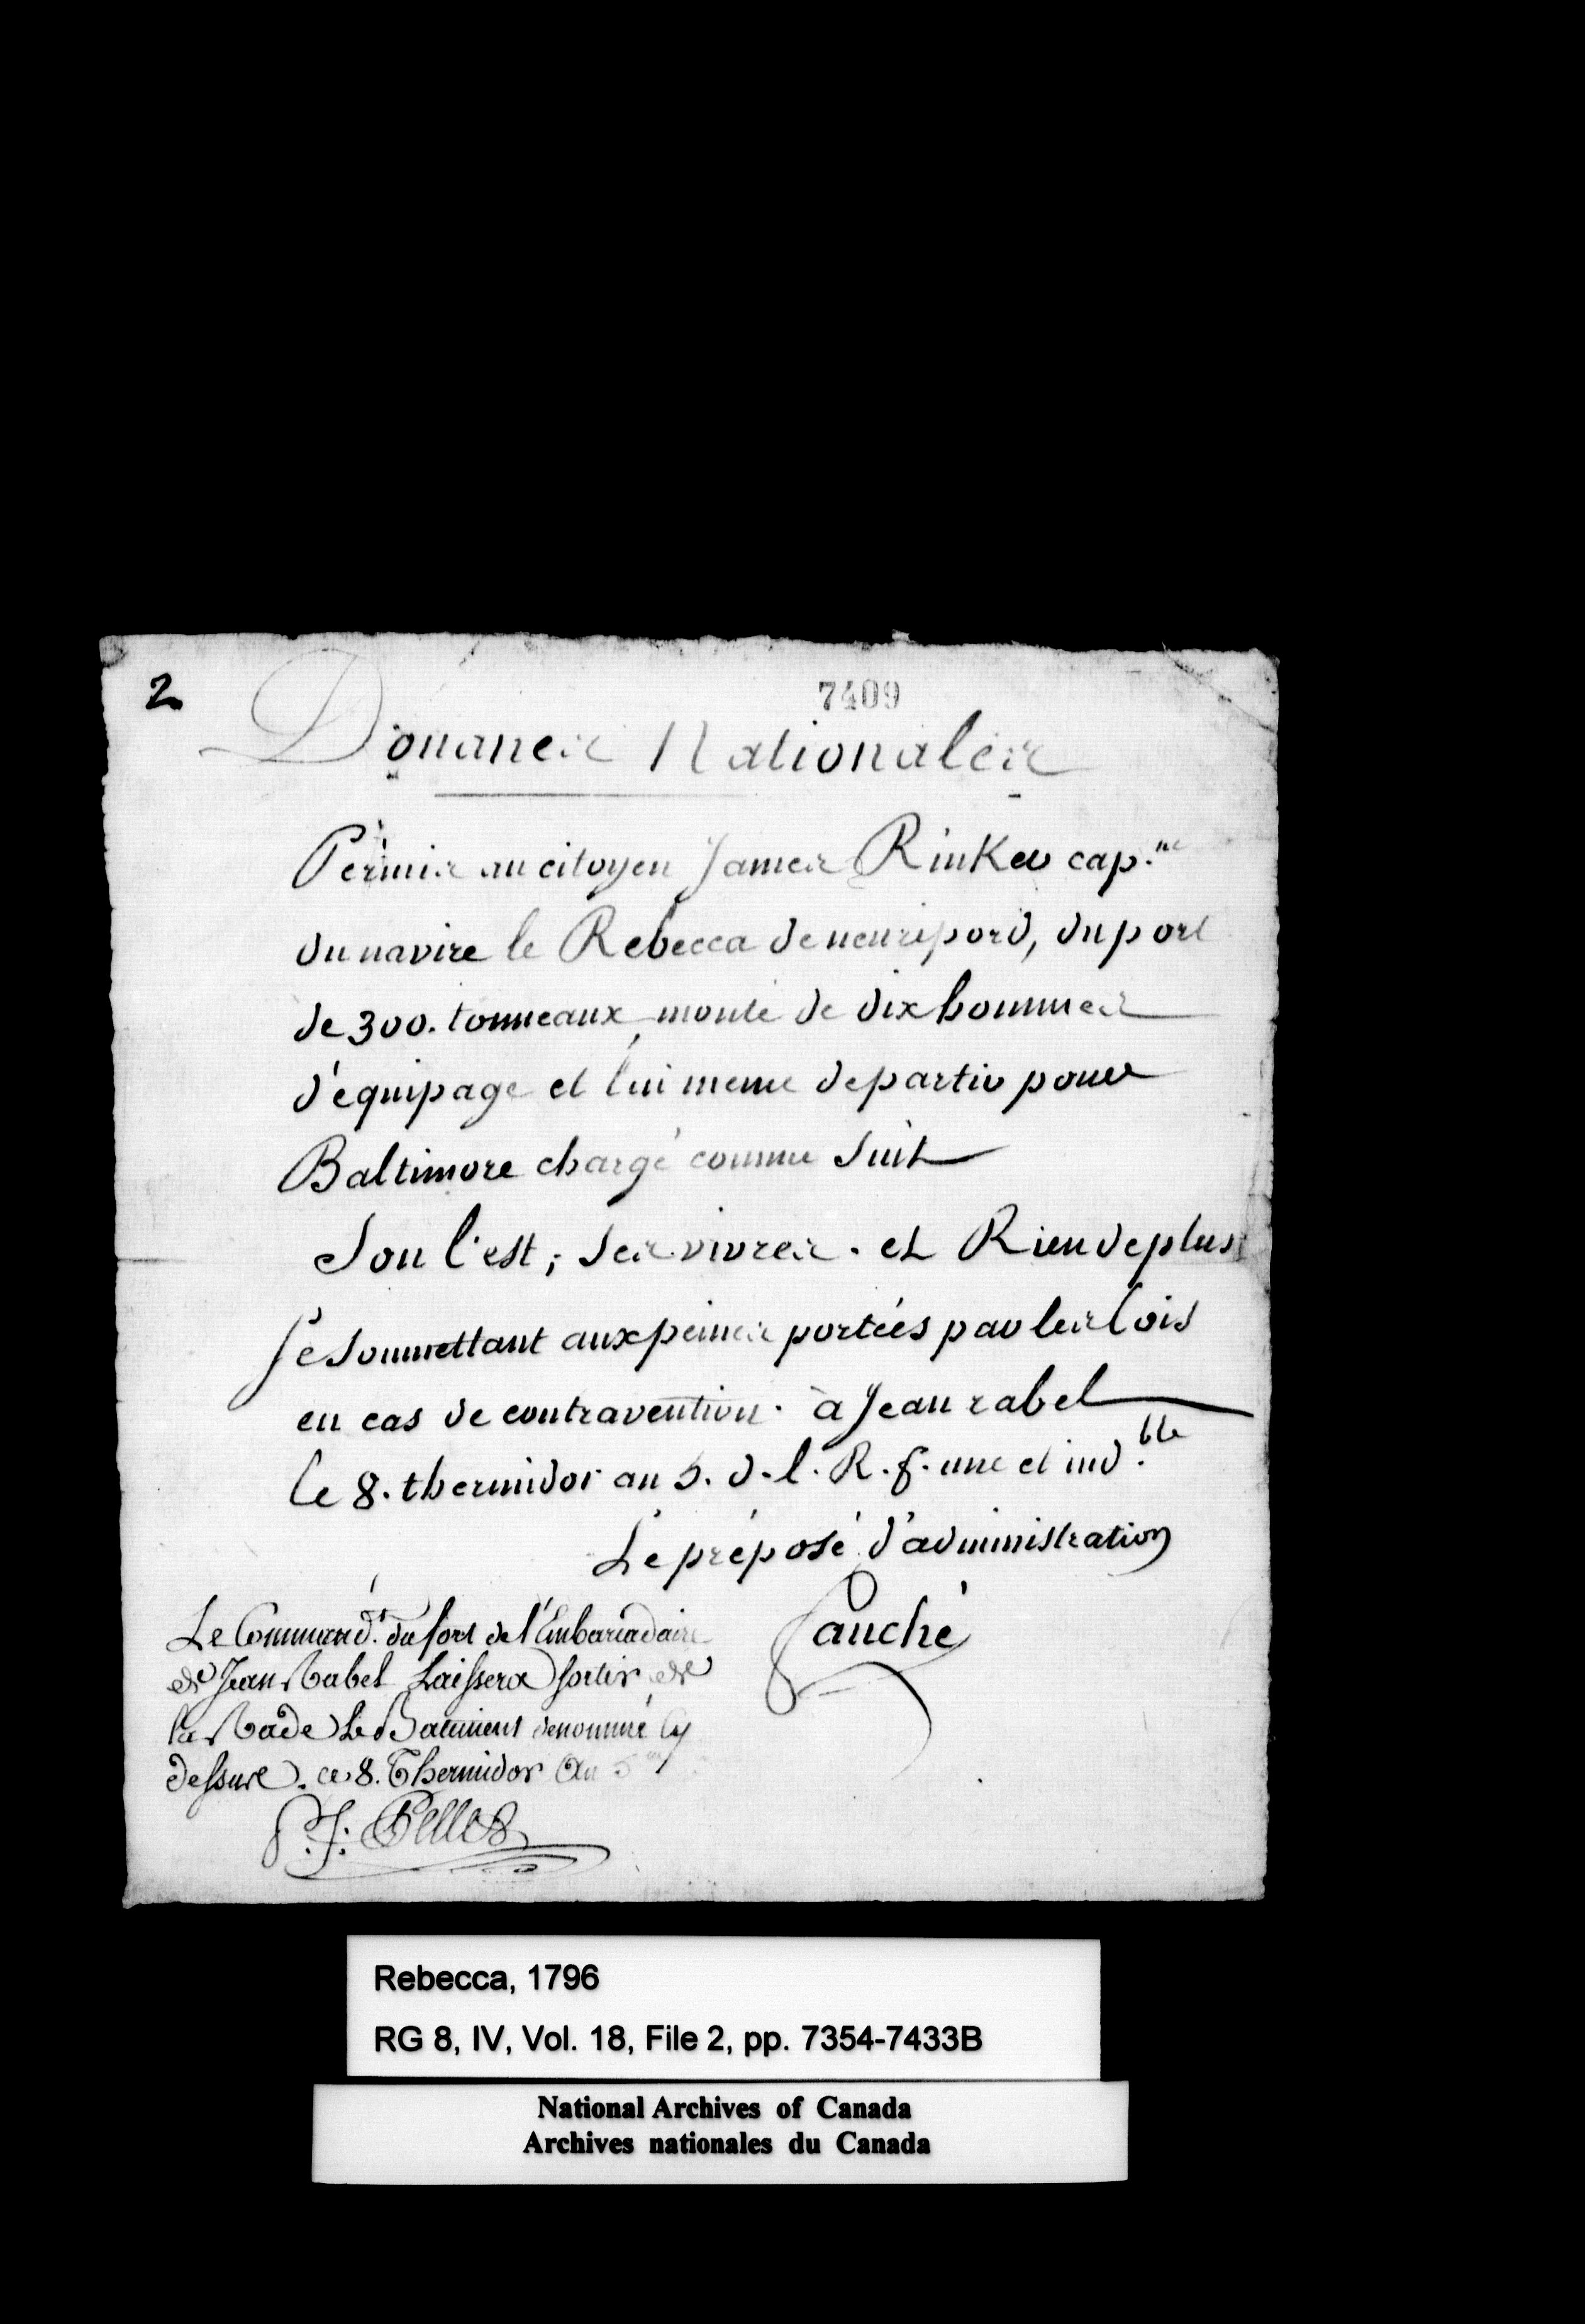 2
7409
Douanes Nationales
Permis au citoyen James Rinker cap.ne
du navire le Rebecca de neuriport, du port
de 300. tonneaux monté de dix hommes
d'équipage et lui meme de partir pour
Baltimore chargé comme suit
Son l'est, ses vivres. et Rien de plus
se soumettant aux peines portées par les lois
en cas de contravention. à Jean rabel
le 8. thermidor an 5. d. l. R. f. une et ind.ble
Le préposé d'administration
Le Command.t du fort de l'Embarcadaire
de Jean Rabel Laissera sortir de
la Rade Le Batiment denommé Cy
dessus. ce 8. Thermidor An 5
Rebecca, 1796
RG 8, IV, Vol. 18, File 2, pp. 7354-7433B
National Archives of Canada
Archives nationales du Canada